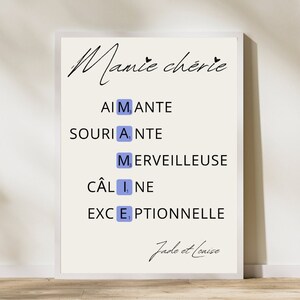 Mamie chérie
AIMANTE
SOURIANTE
MERVEILLEUSE
CÂLINE
EXCEPTIONNELLE
Jade et Louise